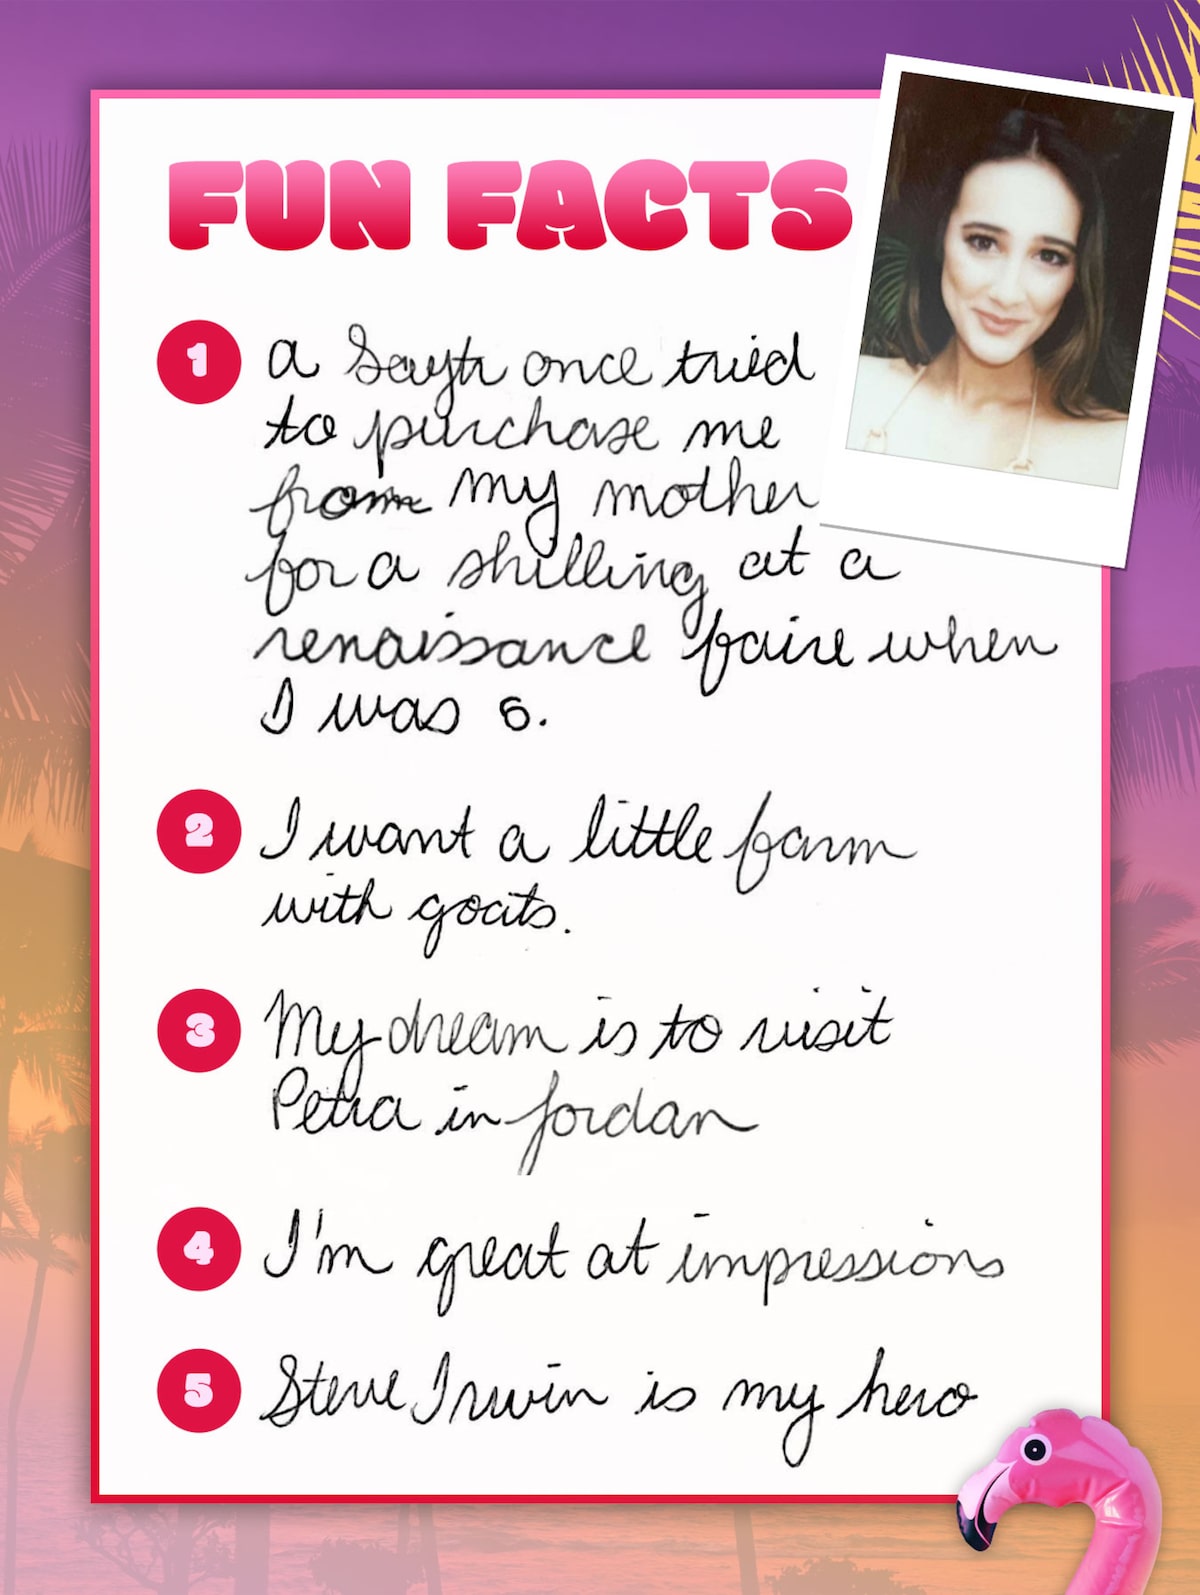 FUN FACTS
1 a Saytr once tried
to purchase me
from my mother
for a shilling at a
renaissance faire when
I was 6.
2 I want a little farm
with goats.
3 My dream is to visit
Petra in Jordan
4 I'm great at impressions
5 Steve Irwin is my hero